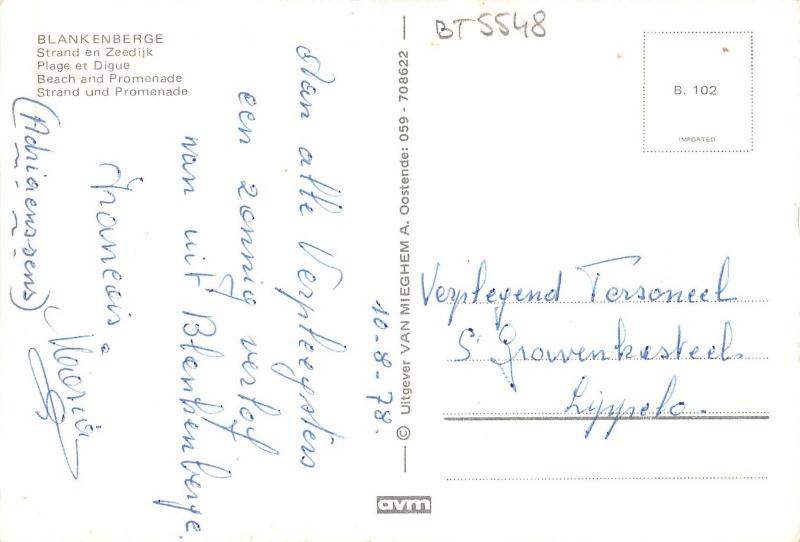 BLANKENBERGE
Strand en Zeedijk
Plage et Digue
Beach and Promenade
Strand und Promenade
BT5548
B. 102
IMPORTED
Aan alle Verpleegsters
een zonnig verlof
van uit Blankenberge.
Francois &
Maria
(Adriaenssens)
10-8-78.
© Uitgever VAN MIEGHEM A. Oostende: 059 - 708622
Verplegend Personeel
S' Gravenkasteel.
Lippelo.
avm